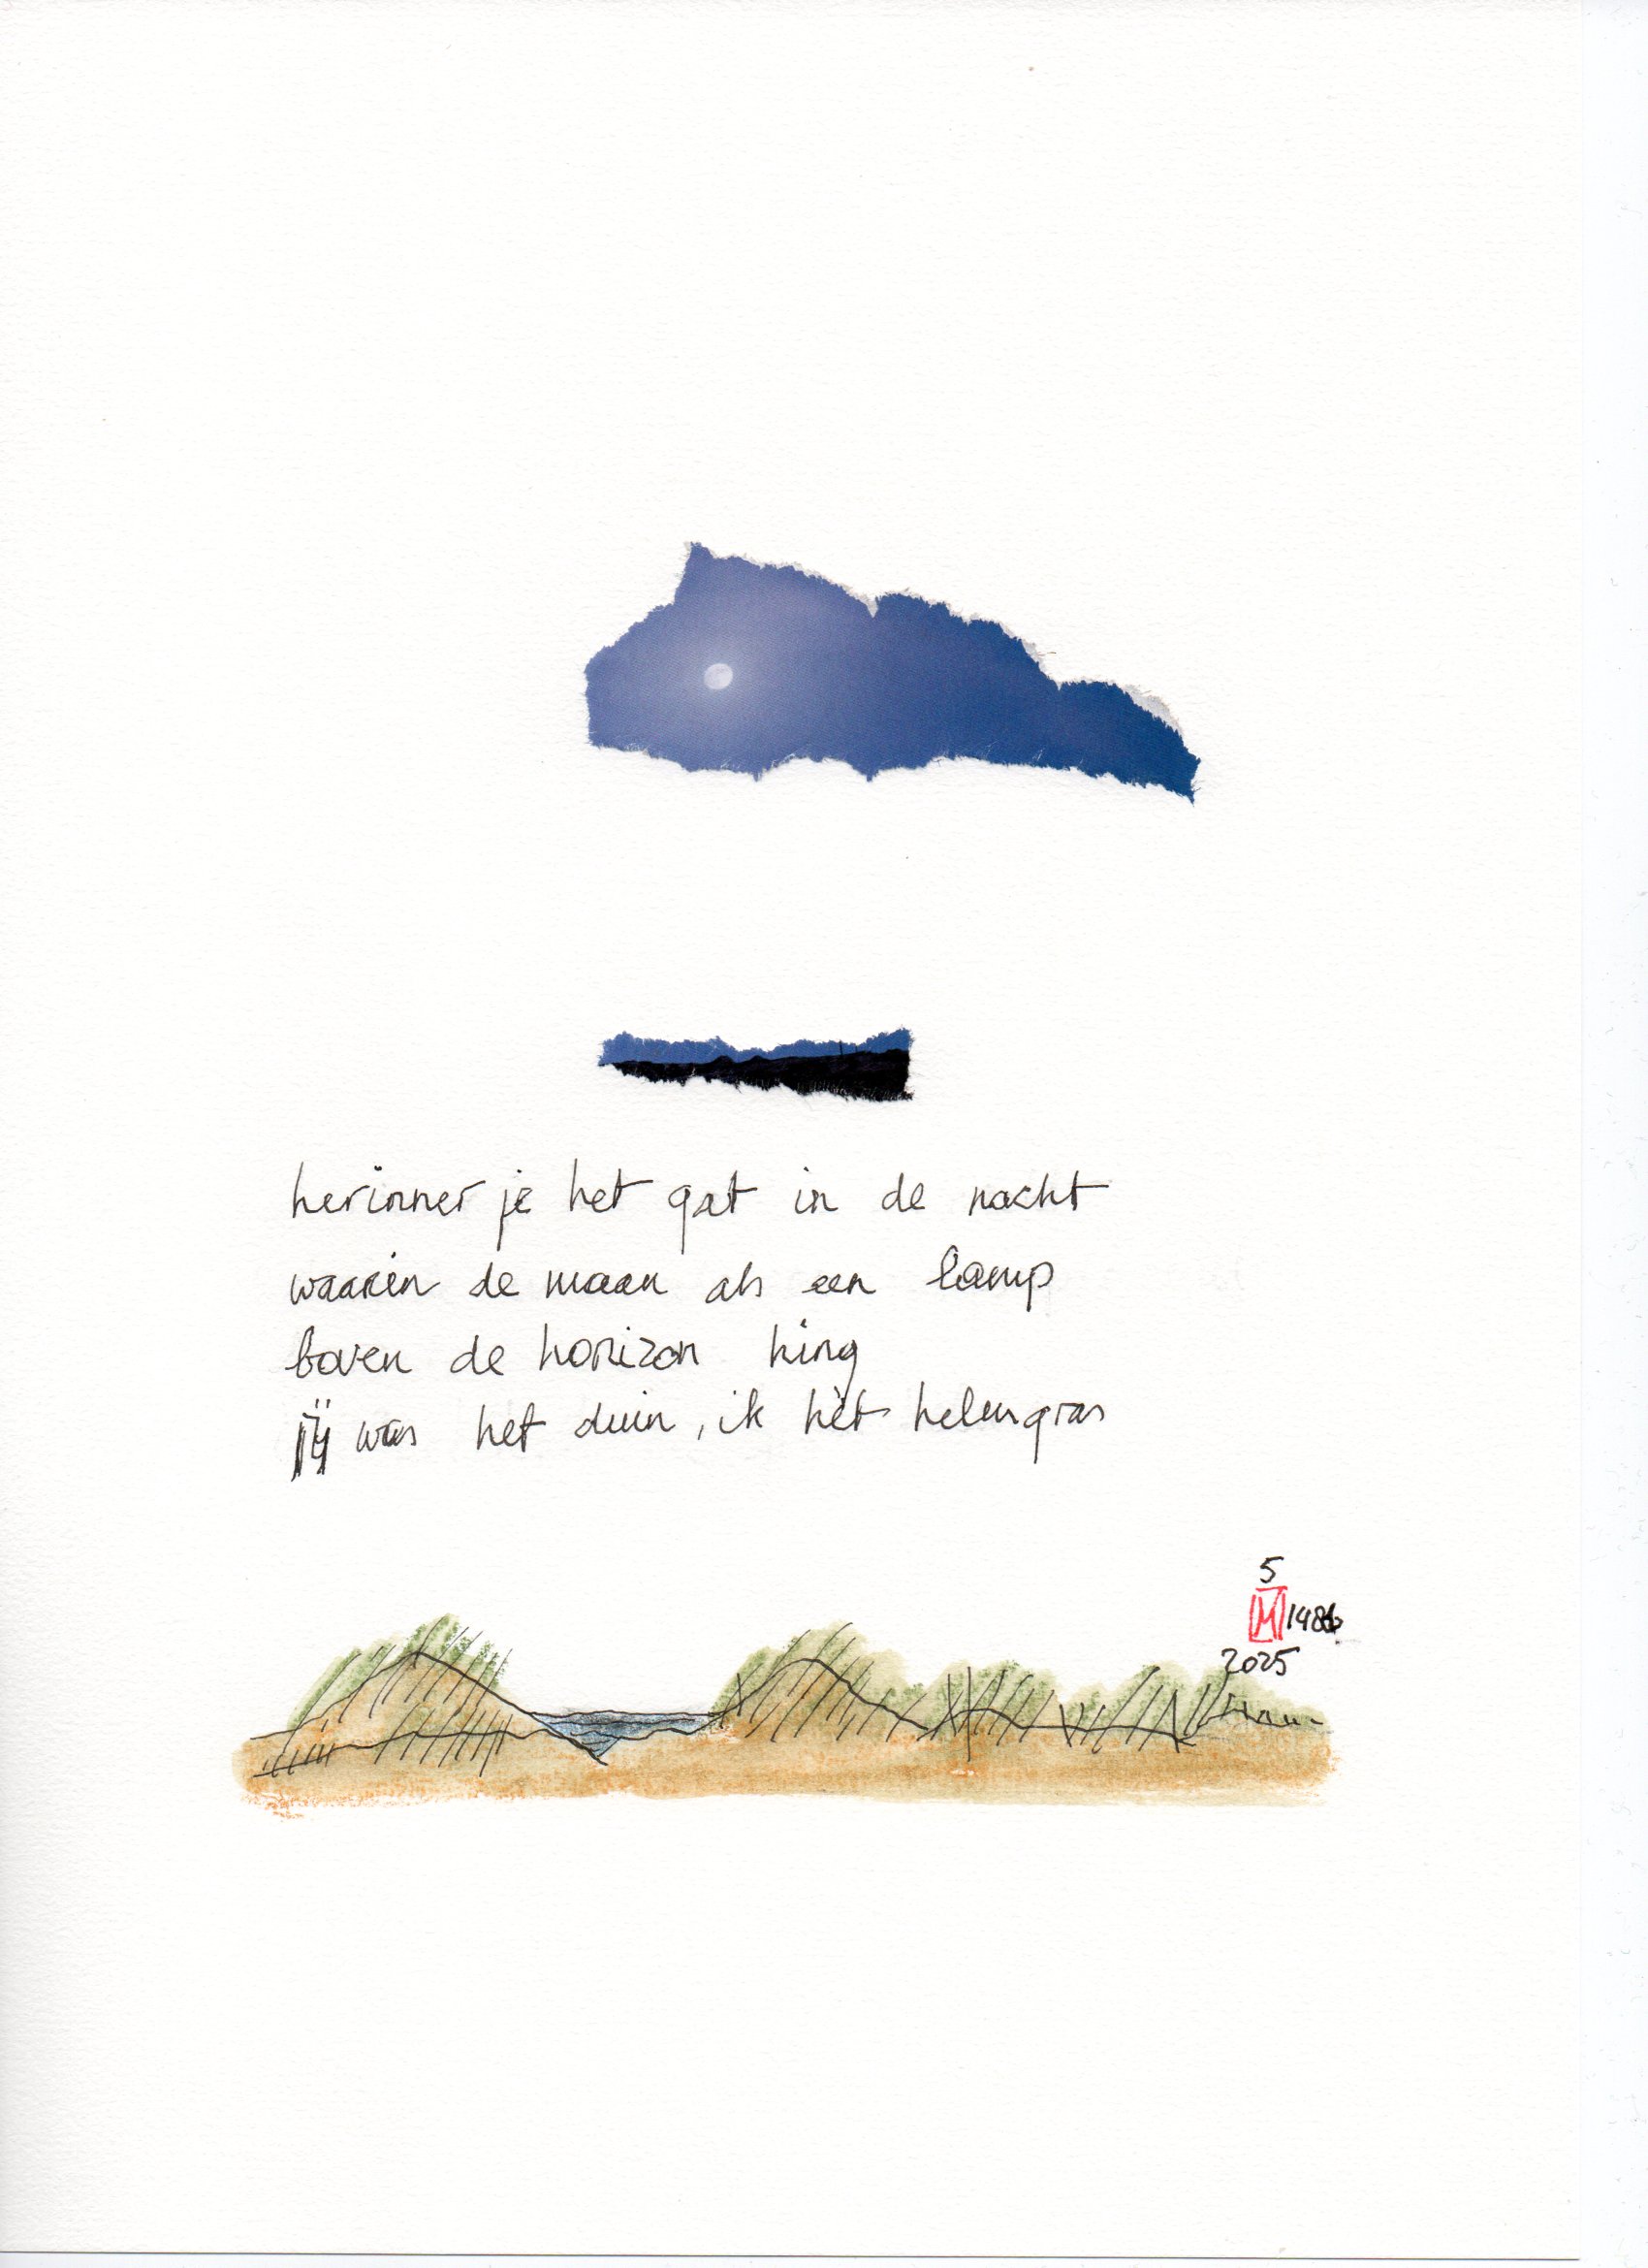 herinner je het gat in de nacht
waarin de maan als een lamp
boven de horizon hing
jij was het duin, ik hèt helmgras
5
M
2025